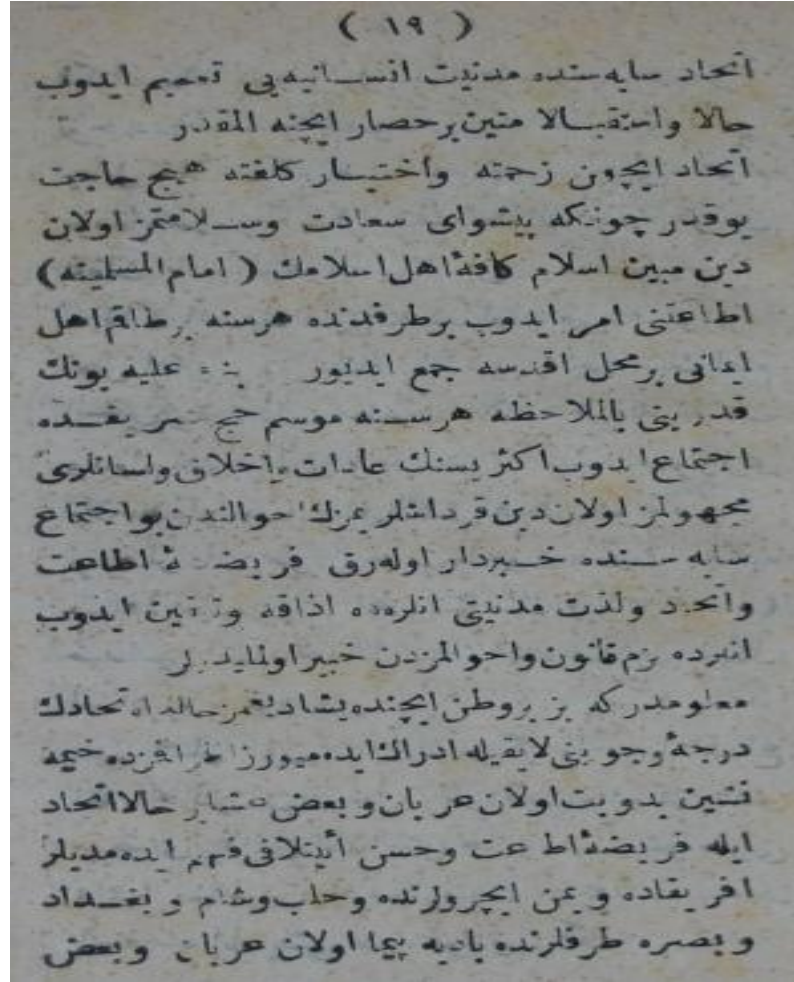 ( ١٩ )
اتحاد سايه سنده مدنيت انسانيه يى تعميم ايدوب
حالا واستقبالا متين برحصار ايچنه المقدر
اتحاد ايچون زحمته واختيار كلفته هيچ حاجت
يوقدر چونكه پيشواى سعادت وسلامتمز اولان
دين مبين اسلام كافۀ اهل اسلامك ( امام المسلمينه )
اطاعتنى امر ايدوب برطرفدنده هرسنه برطاقم اهل
ايمانى برمحل اقدسه جمع ايديور بناء عليه بونك
قدرينى بالملاحظه هرسنه موسم حج شريفده
اجتماع ايدوب اكثريسنك عادات واخلاق ولسانلرى
مجهولمز اولان دين قرداشلريمزك احوالندن بو اجتماع
سايه سنده خبردار اوله رق فريضۀ اطاعت
واتحاد ولذت مدنيتى انلرده اذاقه وتلقين ايدوب
انلرده بزم قانون واحوالمزدن خبير اولمليدرلر
معلومدركه بز بروطن ايچنده يشاديغمز حالده اتحادك
درجۀ وجوبنى لايقيله ادراك ايده ميورز اطرافمزده خيمه
نشين بدويت اولان عربان وبعض عشاير حالا اتحاد
ايله فريضۀ اطاعت وحسن ائتلافى فهم ايده مديلر
افريقاده ويمن ايچرولرنده وحلب وشام وبغداد
وبصره طرفلرنده باديه پيما اولان عربان وبعض